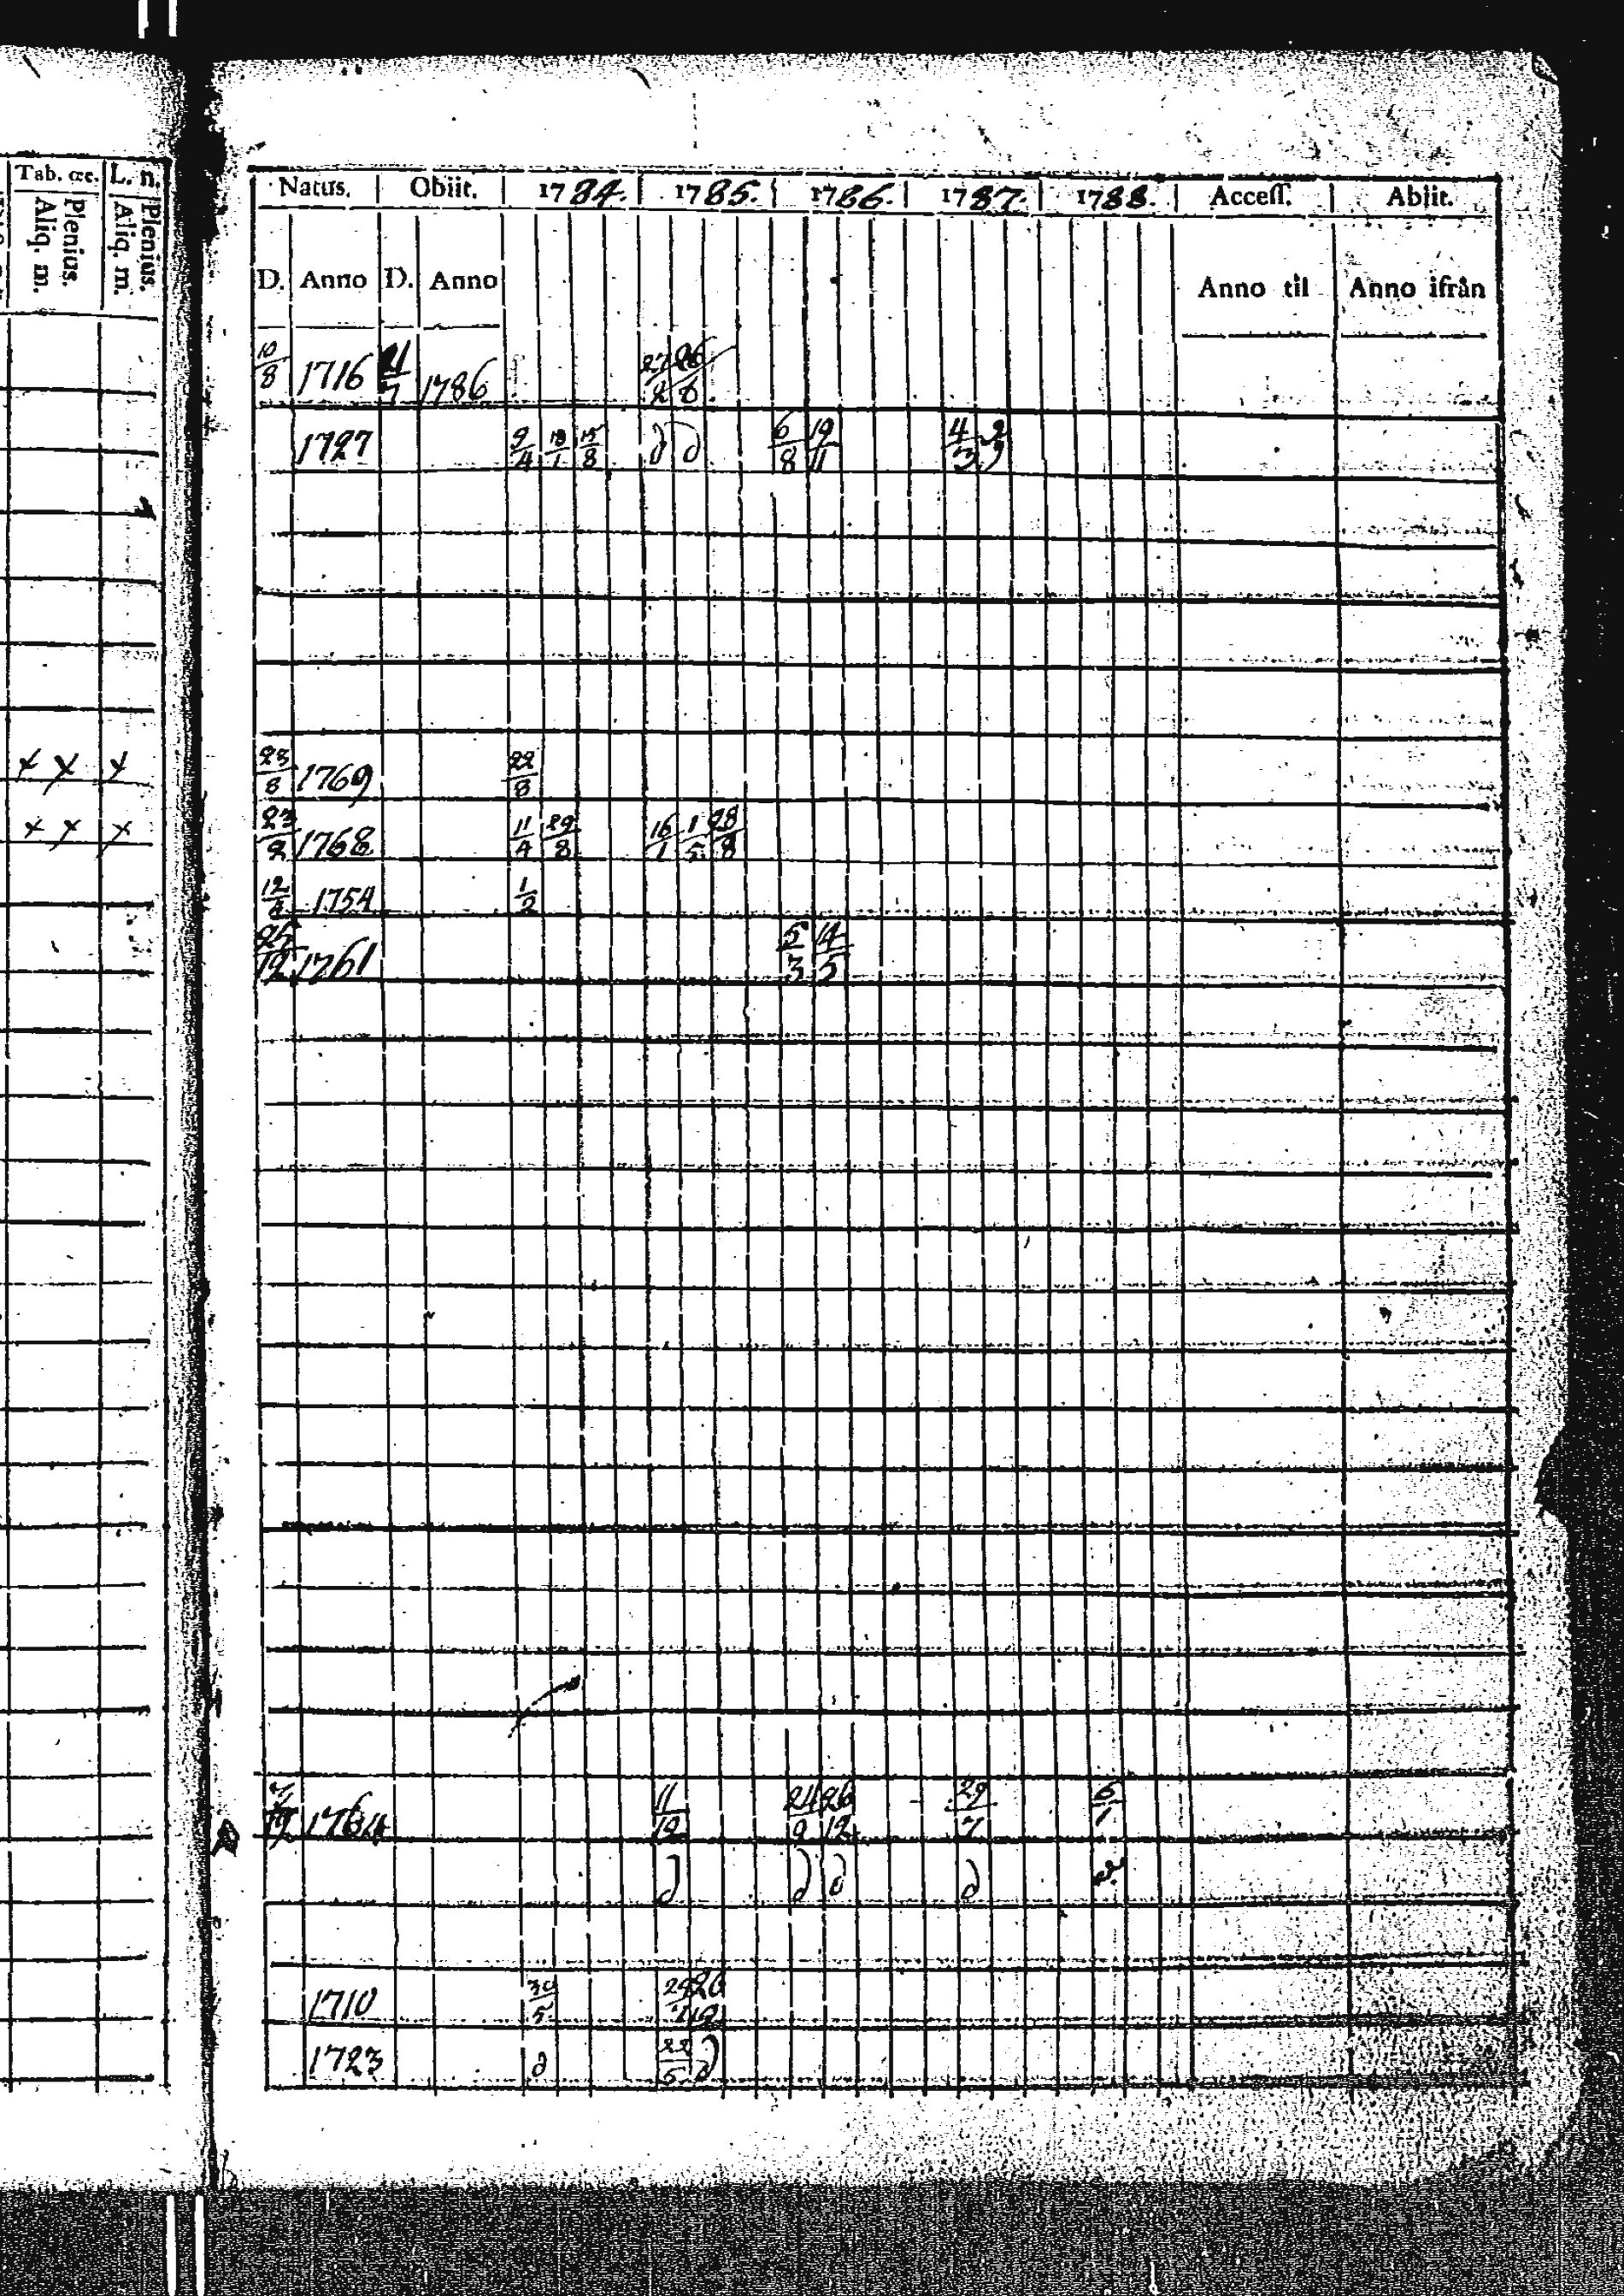 Tab. œc. L. n.
Plenius. Aliq. m. Plenius. Aliq. m.
Natus. Obiit. 1784. 1785. 1786. 1787. 1788. Acceſſ. Abiit.
D. Anno D. Anno Anno til Anno ifrån
10/8 1716 1786 27/2 26/6
1727 9/4 18/1 15/8 d d 6/8 19/11 4/3
x x x 23/8 1769 22/8
x x x 23/2 1768 11/4 29/8 16/1 1/5 28/8
12/4 1754 1/2
25/12 1761 5/3 14/5
1764 11/12 24/9 26/12 29/7 6/1
d d d d
1710 30/5
1723 d 22/5 d